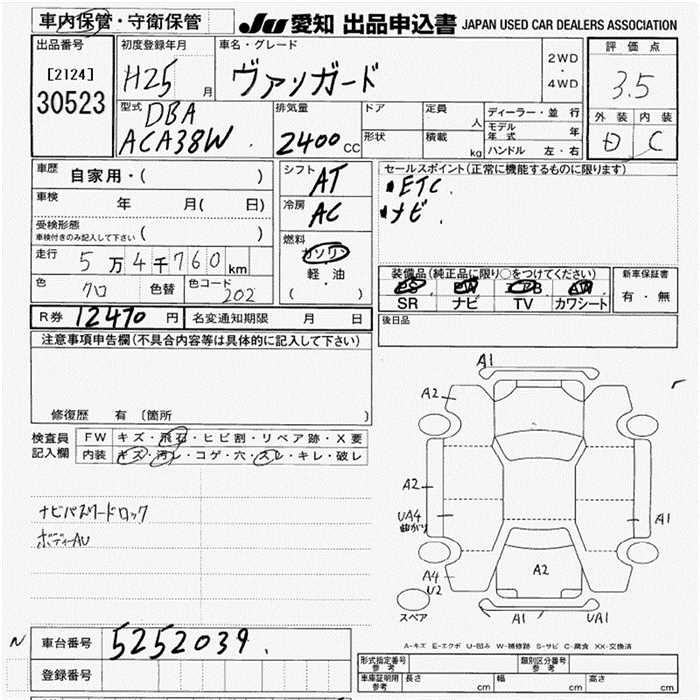 車内保管・守衛保管
JU 愛知 出品申込書 JAPAN USED CAR DEALERS ASSOCIATION
出品番号
[2124]
30523
初度登録年月
H25 月
車名・グレード
ヴァンガード
2WD
・
4WD
評価点
3.5
外装 内装
D C
型式
DBA
ACA38W
排気量
2400 CC
ドア
形状
定員 人
積載 kg
ディーラー・並行
モデル年式 年
ハンドル 左・右
車歴 自家用・( )
車検 年 月( 日)
受検形態
車検付きのみ記入して下さい ( )
走行 5万4千760km
色 クロ 色替 色コード 202
シフト AT
冷房 AC
燃料
ガソリン
・
軽・油
( )
セールスポイント(正常に機能するものに限ります)
・ETC.
・ナビ.
装備品(純正品に限り○をつけてください)
PS PW ABS AW
SR ナビ TV カワシート
新車保証書
有・無
R券 12470 円 名変通知期限 月 日
後日品
注意事項申告欄(不具合内容等は具体的に記入して下さい)
修復歴 有 〔箇所 〕
検査員記入欄
FW キズ・飛石・ヒビ割・リペア跡・X要
内装 キズ・汚レ・コゲ・穴・スレ・キレ・破レ
ナビパスワードロック
ボディーAU
A1
A2
A2
UA4
曲がり
A1
A4
U2
A2
スペア
A1
UA1
A-キズ E-エクボ U-凹み W-補修跡 S-サビ C-腐食 XX-交換済
N
車台番号 5252039
登録番号
形式指定番号 参考
類別区分番号 参考
車庫証明用 参考 長さ cm 幅 cm 高さ cm